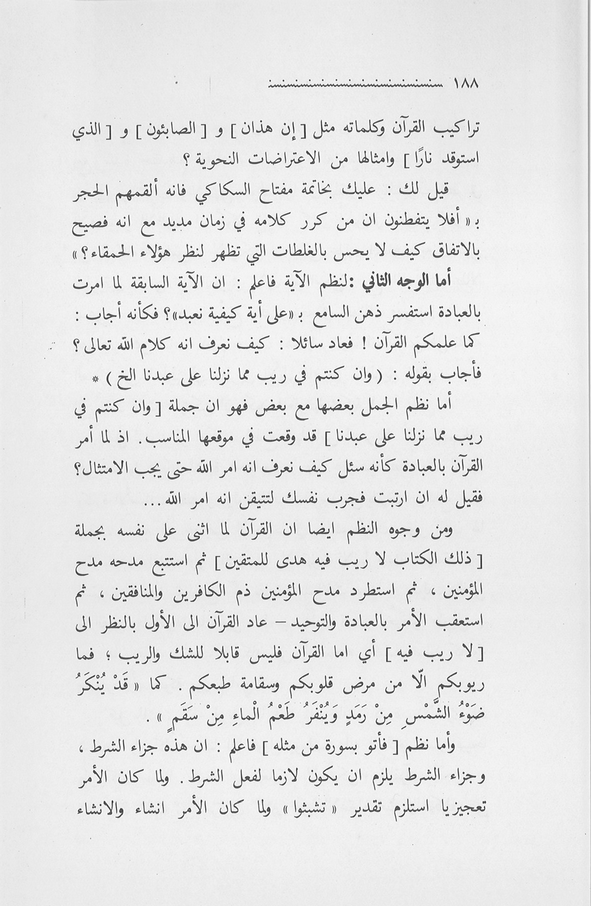 ١٨٨
تراكيب القرآن وكلماته مثل [ إن هذان ] و [ الصابئون ] و [ الذي
استوقد نارًا ] وامثالها من الاعتراضات النحوية ؟
قيل لك : عليك بخاتمة مفتاح السكاكي فانه ألقمهم الحجر
بـ « أفلا يتفطنون ان من كرر كلامه في زمان مديد مع انه فصيح
بالاتفاق كيف لا يحس بالغلطات التي تظهر لنظر هؤلاء الحمقاء؟ »
أما الوجه الثاني : لنظم الآية فاعلم : ان الآية السابقة لما امرت
بالعبادة استفسر ذهن السامع بـ «على أية كيفية نعبد»؟ فكأنه أجاب :
كما علمكم القرآن ! فعاد سائلا : كيف نعرف انه كلام الله تعالى؟
فأجاب بقوله : ( وان كنتم في ريب مما نزلنا على عبدنا الخ ) *
أما نظم الجمل بعضها مع بعض فهو ان جملة [ وان كنتم في
ريب مما نزلنا على عبدنا ] قد وقعت في موقعها المناسب. اذ لما أمر
القرآن بالعبادة كأنه سئل كيف نعرف انه امر الله حتى يجب الامتثال؟
فقيل له ان ارتبت فجرب نفسك لتتيقن انه امر الله...
ومن وجوه النظم ايضا ان القرآن لما اثنى على نفسه بجملة
[ ذلك الكتاب لا ريب فيه هدى للمتقين ] ثم استتبع مدحه مدح
المؤمنين ، ثم استطرد مدح المؤمنين ذم الكافرين والمنافقين ، ثم
استعقب الأمر بالعبادة والتوحيد – عاد القرآن الى الأول بالنظر الى
[ لا ريب فيه ] أي اما القرآن فليس قابلا للشك والريب ؛ فما
ريوبكم الّا من مرض قلوبكم وسقامة طبعكم . كما « قَدْ يُنْكَرُ
ضَوْءُ الشَّمْسِ مِنْ رَمَدٍ وَيُنْفَرُ طَعْمُ الْماءِ مِنْ سَقَمٍ » .
وأما نظم [ فأتو بسورة من مثله ] فاعلم : ان هذه جزاء الشرط ،
وجزاء الشرط يلزم ان يكون لازما لفعل الشرط . ولما كان الأمر
تعجيزيا استلزم تقدير « تشبثوا » ولما كان الأمر انشاء والانشاء